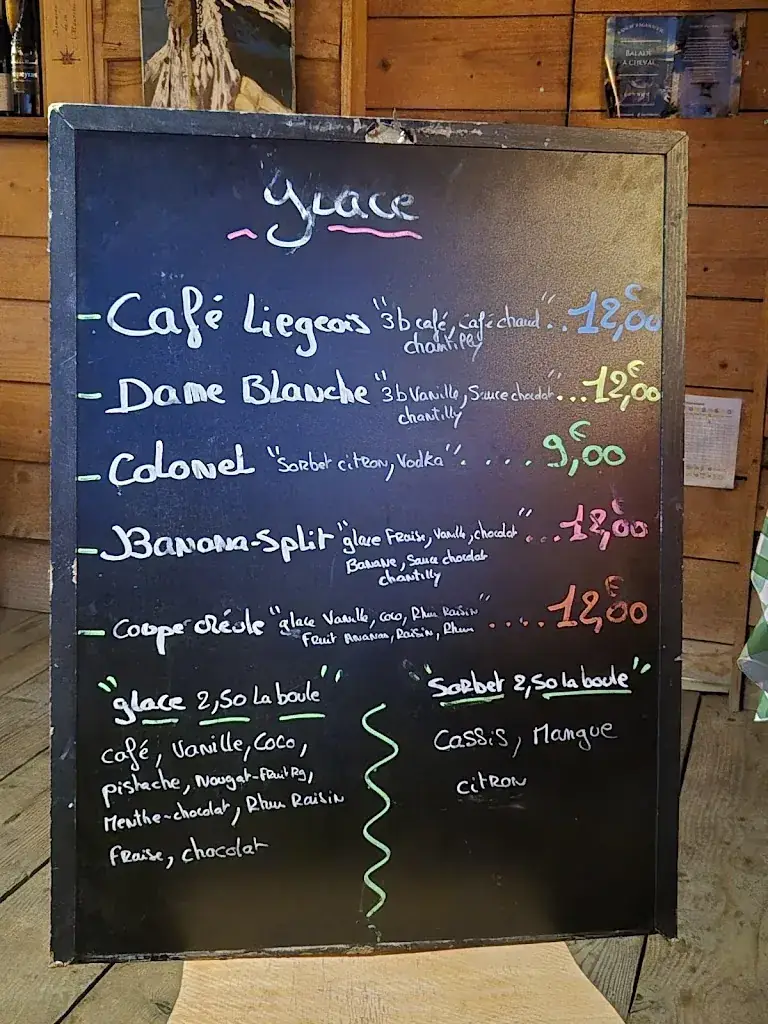 BALADE
À CHEVAL
glace
- Café Liegeois "3 b café, Café chaud" .. 12,00€
chantilly
- Dame Blanche "3 b Vanille, Sauce chocolat" ... 12,00€
chantilly
- Colonel "Sorbet citron, Vodka" . . . . 9,00€
- Banana-Split "glace Fraise, Vanille, chocolat" ... 12,00€
Banane, Sauce chocolat
chantilly
- Coupe créole "glace Vanille, coco, Rhum Raisin" .... 12,00€
Fruit Ananas, Raisin, Rhum
"glace 2,50 La boule"
café, Vanille, Coco,
pistache, Nougat-Fruit Rg,
Menthe-chocolat, Rhum Raisin
Fraise, chocolat
"Sorbet 2,50 la boule"
Cassis, Mangue
citron